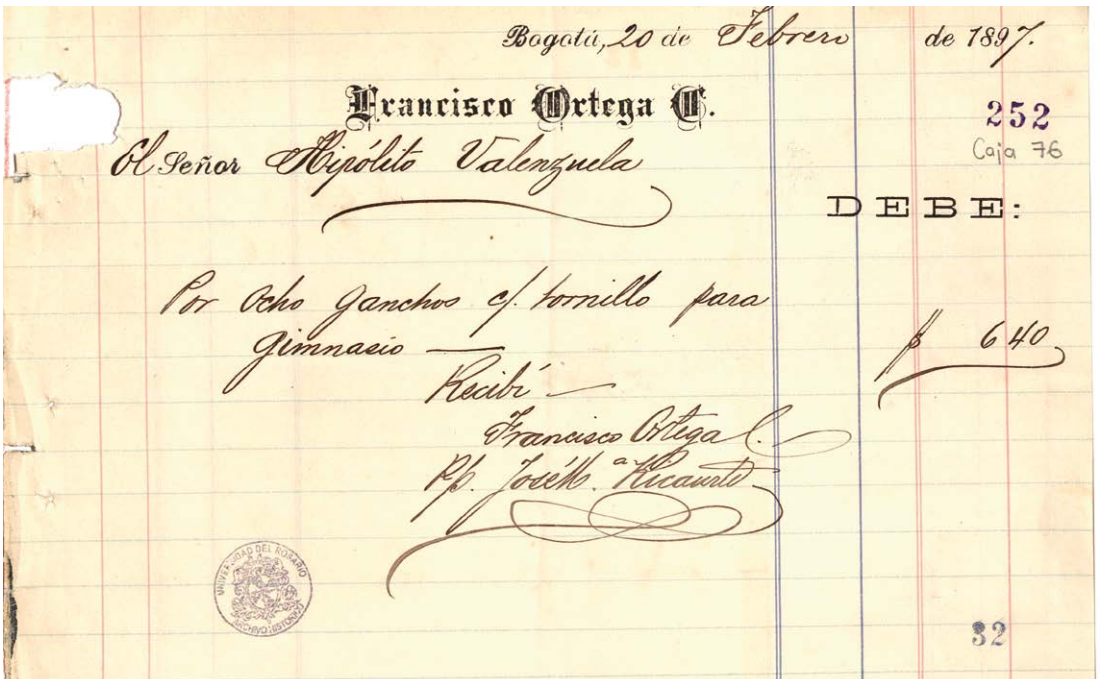 Bogotá, 20 de Febrero de 1897.
Francisco Ortega C.
252
Caja 76
El Señor Hipólito Valenzuela
DEBE:
Por Ocho Ganchos c/. tornillo para
Gimnasio — $ 640
Recibí —
Francisco Ortega C.
Pp. José M.ª Ricaurte
UNIVERSIDAD DEL ROSARIO
ARCHIVO HISTORICO
32